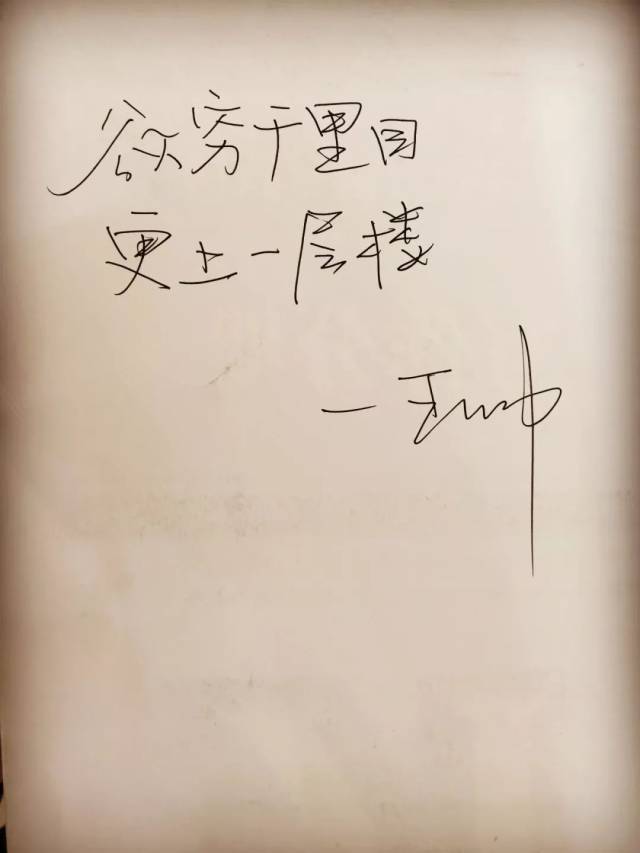 欲穷千里目
更上一层楼
—王